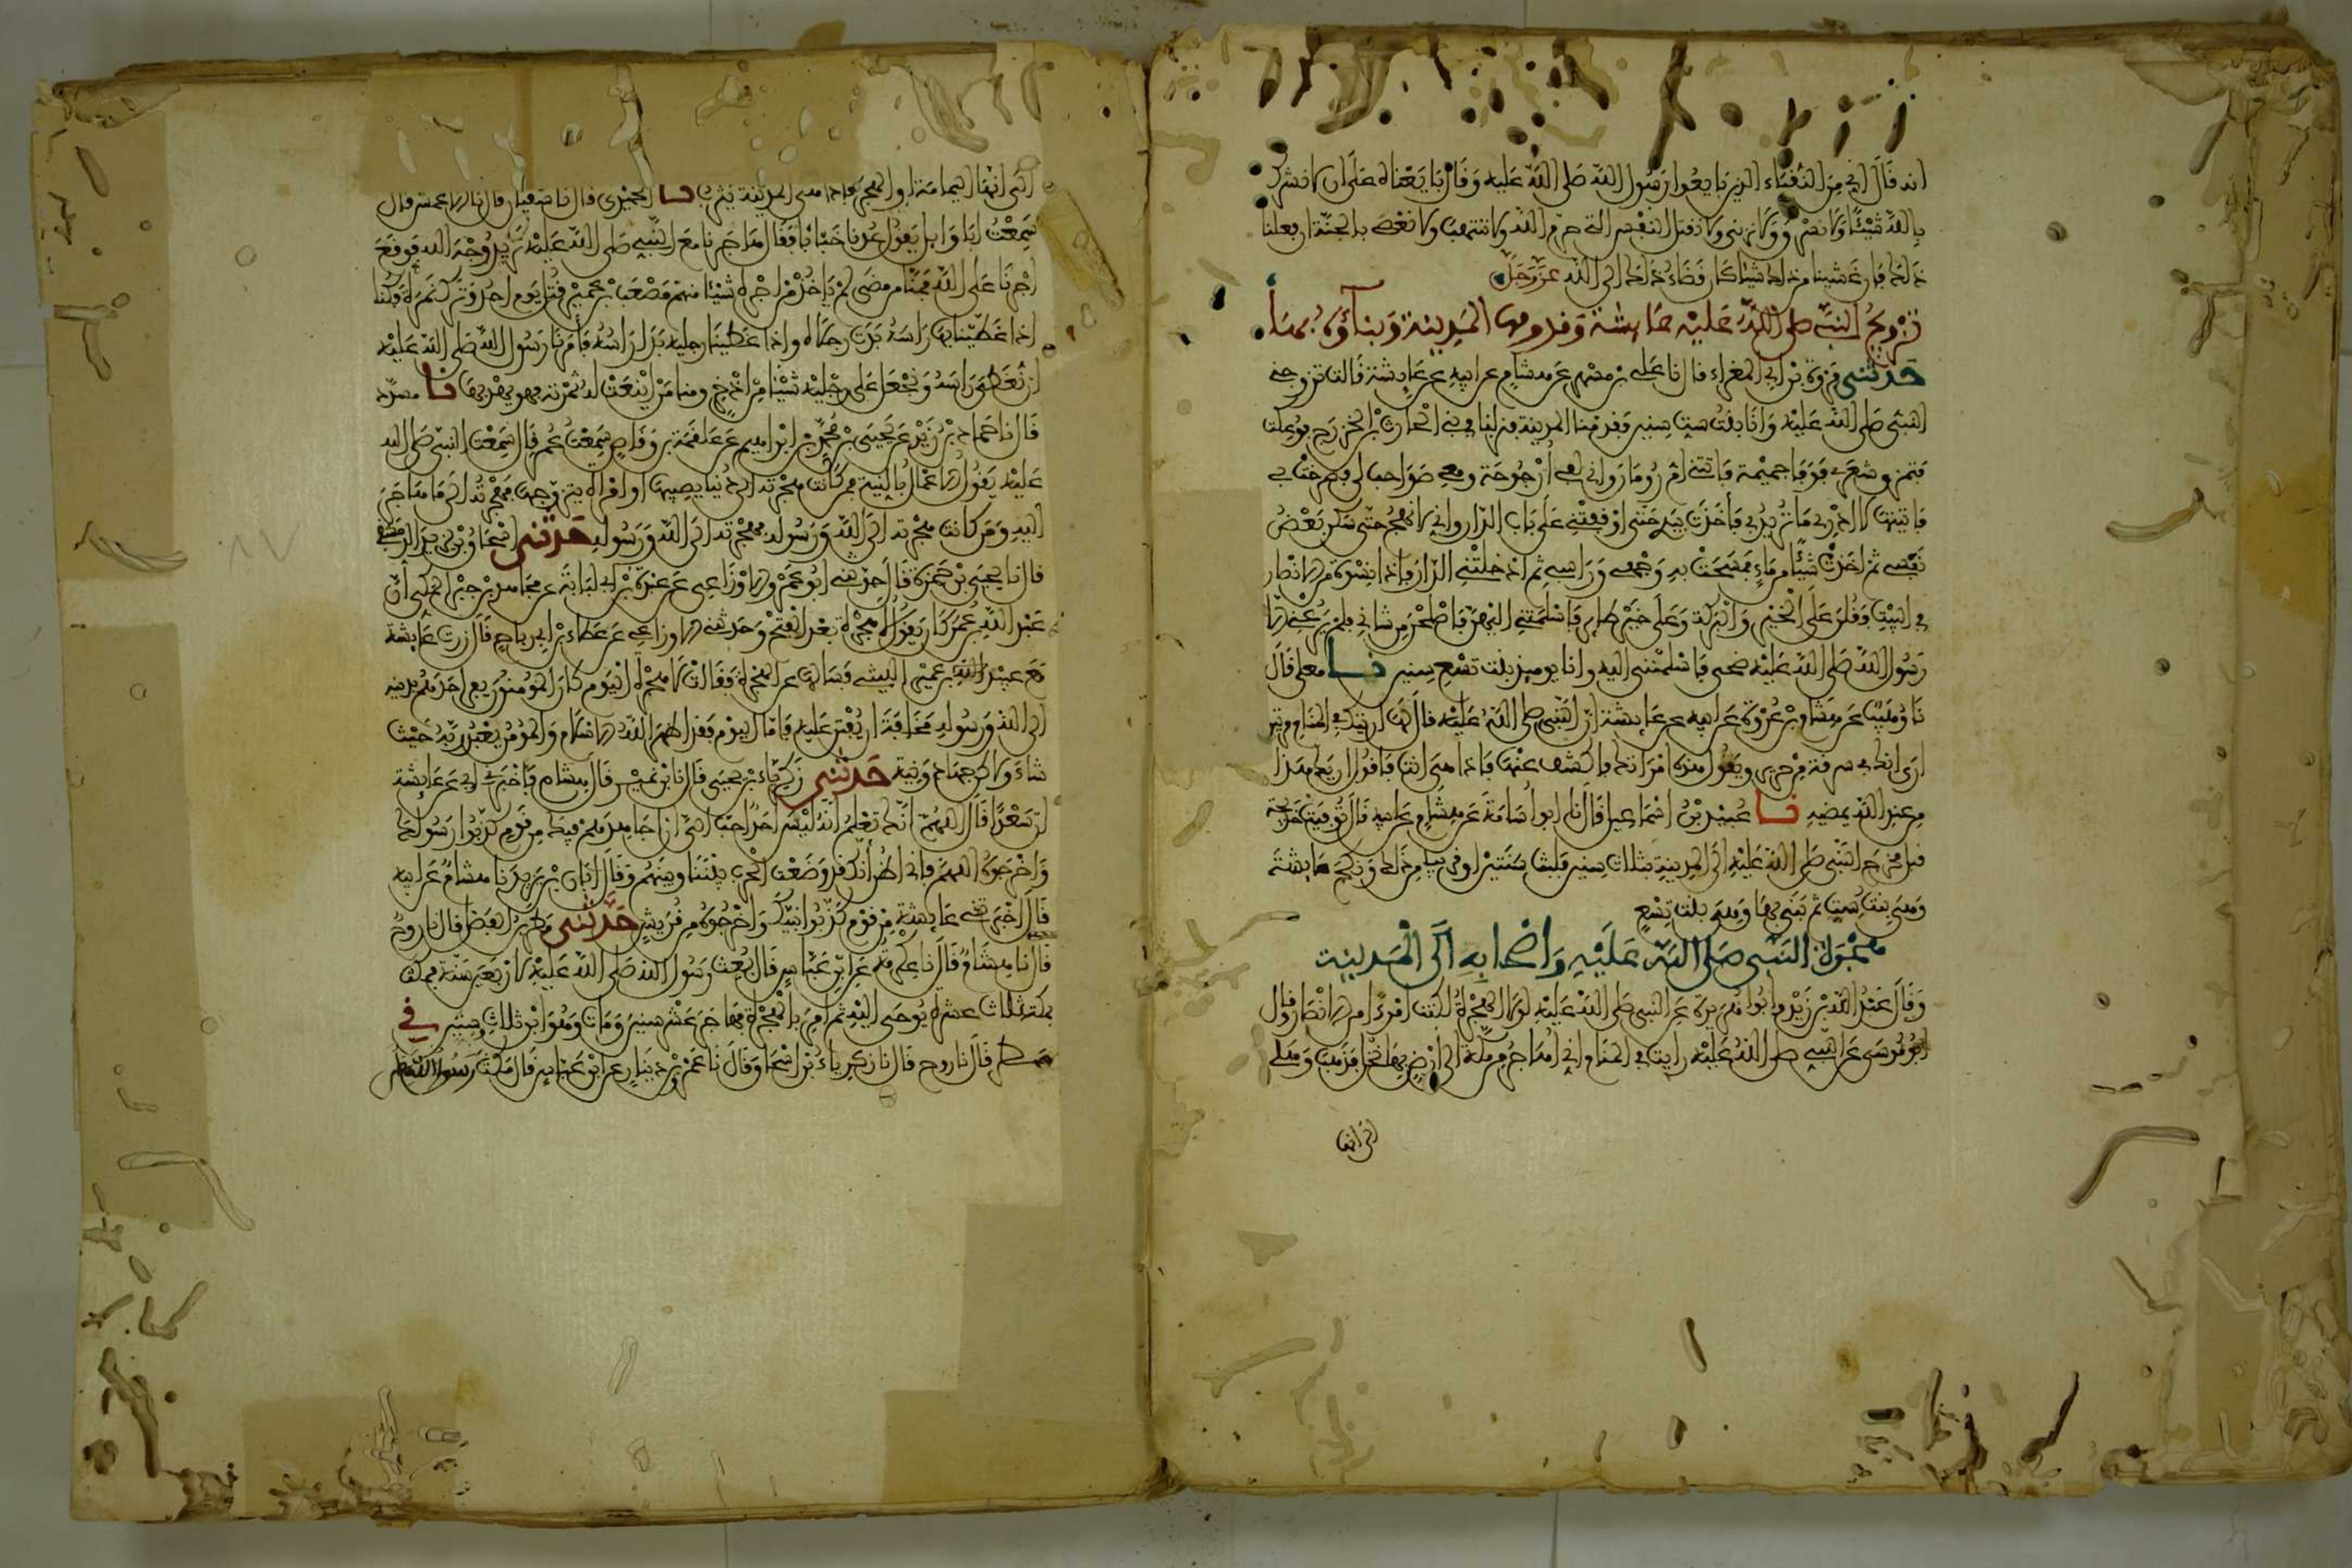 انه قال اني من النقباء الذين بايعوا رسول الله صلى الله عليه وقال بايعناه على ان لا نشرك
بالله شيئا ولا نسرق ولا نزني ولا نقتل النفس التي حرم الله ولا ننتهب ولا نعصي بالجنة ان فعلنا
ذلك فان غشينا من ذلك شيئا كان قضاء ذلك الى الله عز وجل
تزويج النبي صلى الله عليه عائشة وقدومها المدينة وبناؤه بها
حدثني فروة بن ابي المغراء قال نا علي بن مسهر عن هشام عن ابيه عن عائشة قالت تزوجني
النبي صلى الله عليه وانا بنت ست سنين فقدمنا المدينة فنزلنا في بني الحارث بن الخزرج فوعكت
فتمزق شعري فوفا جميمة فاتتني ام رومان واني لفي ارجوحة ومعي صواحب لي فصرخت بي
فاتيتها لا ادري ما تريد بي فاخذت بيدي حتى اوقفتني على باب الدار واني لانهج حتى سكن بعض
نفسي ثم اخذت شيئا من ماء فمسحت به وجهي وراسي ثم ادخلتني الدار فاذا نسوة من الانصار
في البيت فقلن على الخير والبركة وعلى خير طائر فاسلمتني اليهن فاصلحن من شاني فلم يرعني الا
رسول الله صلى الله عليه ضحى فاسلمتني اليه وانا يومئذ بنت تسع سنين نا معلى قال
نا وهيب عن هشام بن عروة عن ابيه عن عائشة ان النبي صلى الله عليه قال لها اريتك في المنام مرتين
ارى انك في سرقة من حرير ويقول هذه امراتك فاكشف عنها فاذا هي انت فاقول ان يك هذا
من عند الله يمضه نا عبيد بن اسماعيل قال نا ابو اسامة عن هشام عن ابيه قال توفيت خديجة
قبل مخرج النبي صلى الله عليه الى المدينة بثلاث سنين فلبث سنتين او قريبا من ذلك ونكح عائشة
وهي بنت ست ثم بنى بها وهي بنت تسع
هجرة النبي صلى الله عليه واصحابه الى المدينة
وقال عبد الله بن زيد وابو هريرة عن النبي صلى الله عليه لولا الهجرة لكنت امرءا من الانصار وقال
ابو موسى عن النبي صلى الله عليه رايت في المنام اني اهاجر من مكة الى ارض بها نخل فذهب وهلي
الى انها
الى انها اليمامة او الهجر فاذا هي المدينة يثرب نا الحميدي قال نا سفيان قال نا الاعمش قال
سمعت ابا وائل يقول عدنا خبابا فقال هاجرنا مع النبي صلى الله عليه نريد وجه الله فوقع
اجرنا على الله فمنا من مضى لم ياخذ من اجره شيئا منهم مصعب بن عمير قتل يوم احد وترك نمرة فكنا
اذا غطينا بها راسه بدت رجلاه واذا غطينا رجليه بدا راسه فامرنا رسول الله صلى الله عليه
ان نغطي راسه ونجعل على رجليه شيئا من اذخر ومنا من اينعت له ثمرته فهو يهدبها نا مسدد
قال نا حماد بن زيد عن يحيى عن محمد بن ابراهيم عن علقمة بن وقاص سمعت عمر قال سمعت النبي صلى الله
عليه يقول الاعمال بالنية فمن كانت هجرته الى دنيا يصيبها او امراة يتزوجها فهجرته الى ما هاجر
اليه ومن كانت هجرته الى الله ورسوله فهجرته الى الله ورسوله حدثني اسحاق بن يزيد الدمشقي
قال نا يحيى بن حمزة قال حدثني ابو عمرو الاوزاعي عن عبدة بن ابي لبابة عن مجاهد بن جبر المكي ان
عبد الله بن عمر كان يقول لا هجرة بعد الفتح وحدثني الاوزاعي عن عطاء بن ابي رباح قال زرت عائشة
مع عبيد بن عمير الليثي فسالها عن الهجرة فقالت لا هجرة اليوم كان المؤمنون يفر احدهم بدينه
الى الله ورسوله مخافة ان يفتن عليه فاما اليوم فقد اظهر الله الاسلام والمؤمن يعبد ربه حيث
شاء ولكن جهاد ونية حدثني زكرياء بن يحيى قال نا ابن نمير قال هشام فاخبرني ابي عن عائشة
ان سعدا قال اللهم انك تعلم انه ليس احد احب الي ان اجاهدهم فيك من قوم كذبوا رسولك
واخرجوه اللهم فاني اظن انك قد وضعت الحرب بيننا وبينهم وقال ابان بن يزيد نا هشام عن ابيه
قال اخبرتني عائشة من قوم كذبوا نبيك واخرجوه من قريش حدثني مطر بن الفضل قال نا روح
قال نا هشام قال نا عكرمة عن ابن عباس قال بعث رسول الله صلى الله عليه لاربعين سنة فمكث
بمكة ثلاث عشرة يوحى اليه ثم امر بالهجرة فهاجر عشر سنين ومات وهو ابن ثلاث وستين في
مطر قال نا روح قال نا زكرياء بن اسحاق قال نا عمرو بن دينار عن ابن عباس قال مكث رسول الله صلى